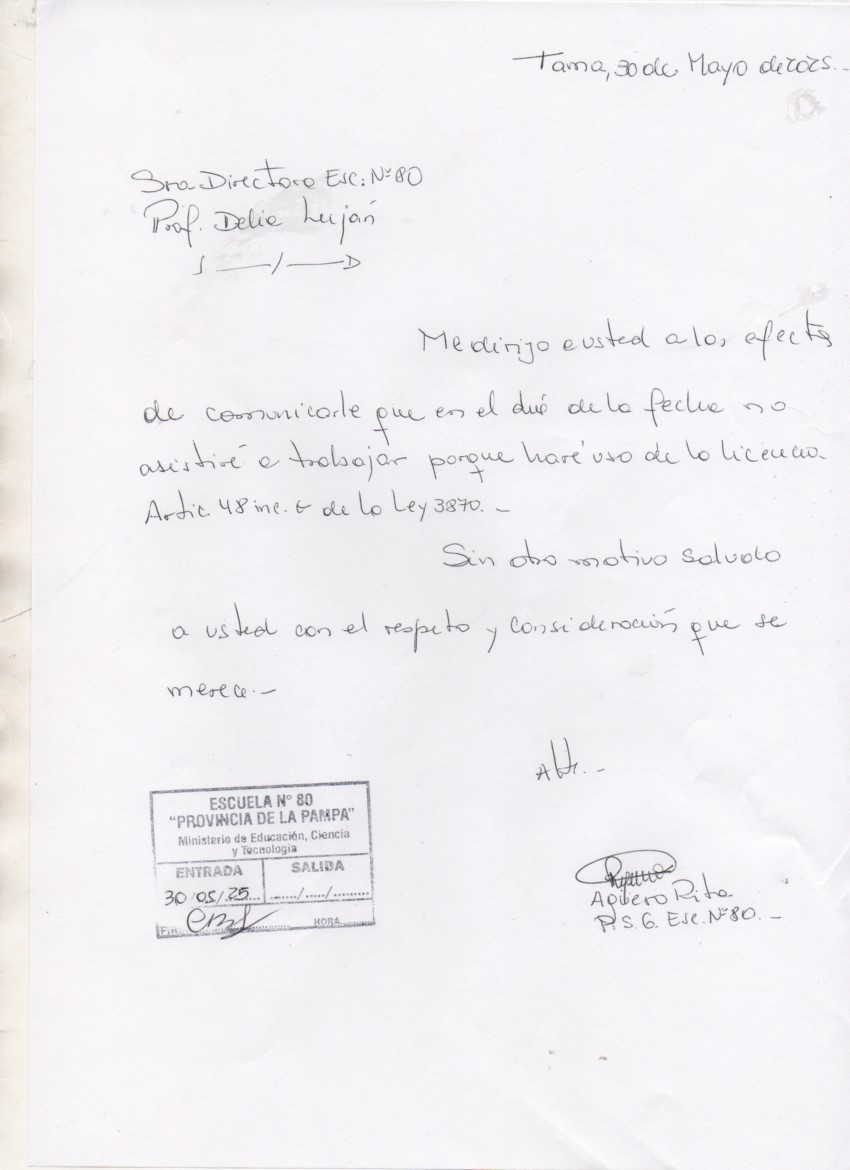 Tama, 30 de Mayo de 2025.-
Sra Directora Esc: Nº 80
Prof. Delia Luján
S ——/——D
Me dirijo a usted a los efectos
de comunicarle que en el dia de la fecha no
asistiré a trabajar porque haré uso de la licencia.
Artic. 48 inc. 6 de la Ley 3870.-
Sin otro motivo saludo
a usted con el respeto y consideración que se
merece.-
Att.-
ESCUELA Nº 80
"PROVINCIA DE LA PAMPA"
Ministerio de Educación, Ciencia
y Tecnología
ENTRADA SALIDA
30/05/25 ....../...../.........
FIR. HORA
Agüero Rita
P.S.G. Esc. Nº 80.-